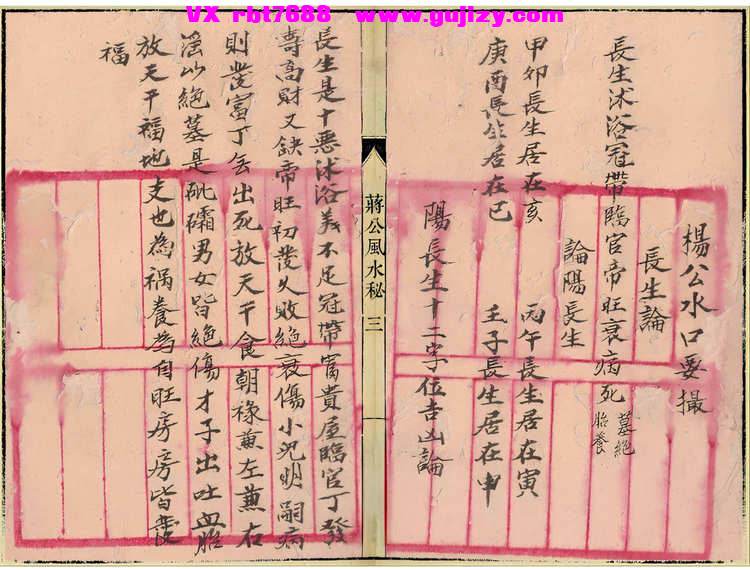 VX rbt7688 www.gujizy.com
楊公水口要撮
長生論
長生沭浴冠帶臨官帝旺衰病死墓絕胎養
論陽長生
甲卯長生居在亥 丙午長生居在寅
庚酉長生居在巳 壬子長生居在申
陽長生十二字位吉凶論
蔣公風水秘 三
長生是十惡沭浴義不足冠帶富貴屋臨官丁發
壽高財又缺帝旺初發久敗絕衰傷小兒明嗣病
則發富丁丢出死放天干食朝祿兼左兼右
滛以絕墓是砒礵男女皆絕傷才子出吐血胎
放天干福地支也為禍養為自旺房房皆發
福